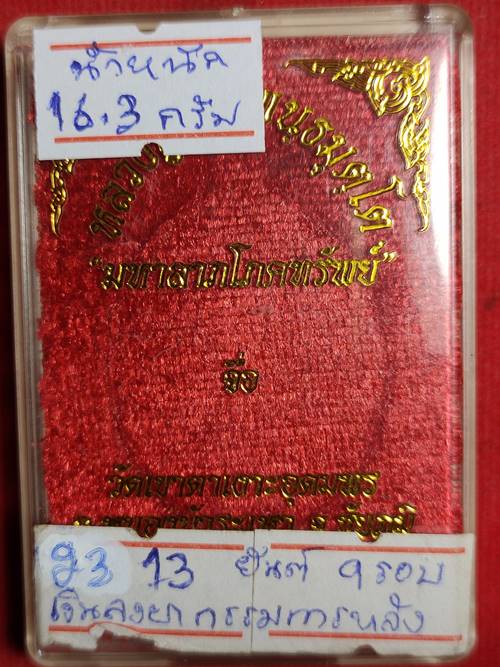 น้ำหนัก
16.3 กรัม
พันธมุตฺโต
"มหาลาภโภคทรัพย์"
จื่อ
วัดเขาตาเงาะอุดมพร
จ.ชัยภูมิ
93 13 ยันต์ 9 รอบ
เงินลงยา กรรมการหลัง